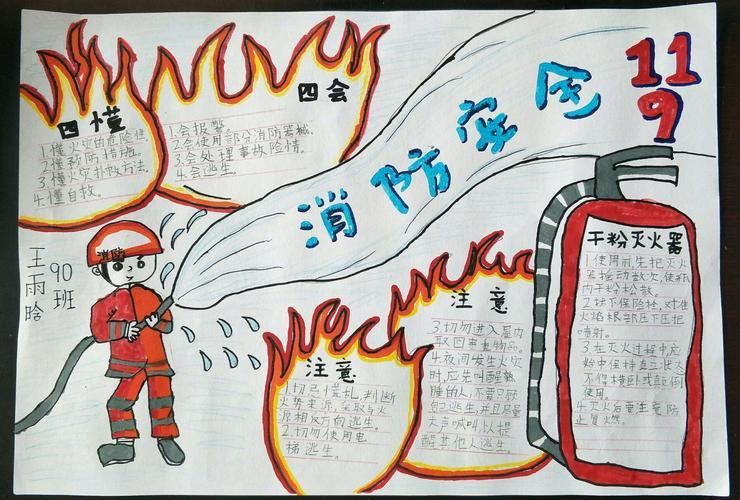 消防安全
119
四懂
1.懂火灾的危险性.
2.懂预防措施.
3.懂火灾扑救方法.
4.懂自救。
四会
1.会报警.
2.会使用部分消防器械.
3.会处理事故险情.
4.会逃生.
消防
王雨晗
90班
注意
1.切忌慌乱,判断
火势来源,采取与火
源相反方向逃生。
2.切勿使用电
梯逃生。
注意
3.切勿进入屋内
取回贵重物品。
4.夜间发生火灾
时,应先叫醒熟
睡的人,不要只顾
自己逃生,并且尽量
大声喊叫,以提
醒其他人逃生。
干粉灭火器
1.使用前,先把灭火
器摇动数次,使瓶
内干粉松散。
2.拔下保险栓,对准
火焰根部压下压把
喷射。
3.在灭火过程中,应
始中保持直立状态
不得横卧或颠倒
使用。
4.灭火后要注意防
止复燃。